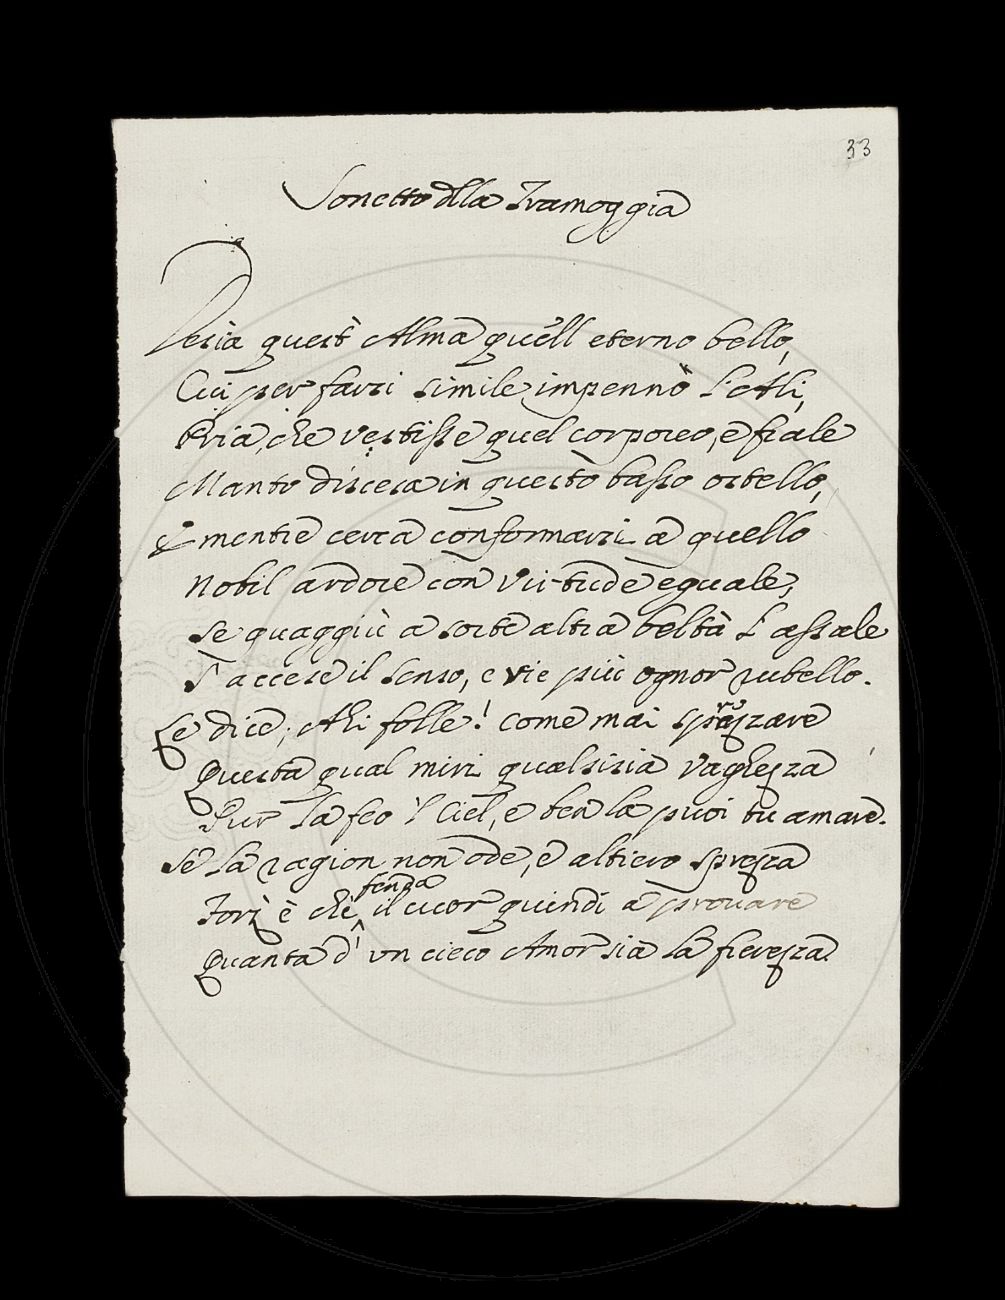 33
Sonetto dlla Tramoggia
Desia quest' Alma quell eterno bello,
Cui per farsi simile impennò l'Ali,
Pria, che vestisse quel corporeo, e frale
Manto discesa in questo basso ostello,
E mentre cerca conformarsi a quello
Nobil ardore con virtude eguale,
se quaggiù a sorte altra beltà l'assale
S'accese il senso, e vie più ognor rubello.
Se dice, Ahi folle! come mai sprezzare
Questa qual miri qualsisia vaghezza
Pur la feo 'l Ciel, e ben la puoi tu amare.
Se la ragion non ode, e altiero sprezza
Forz' è chè senza il cuor quindi a provare
Quanta d'un cieco Amor sia la fierezza.